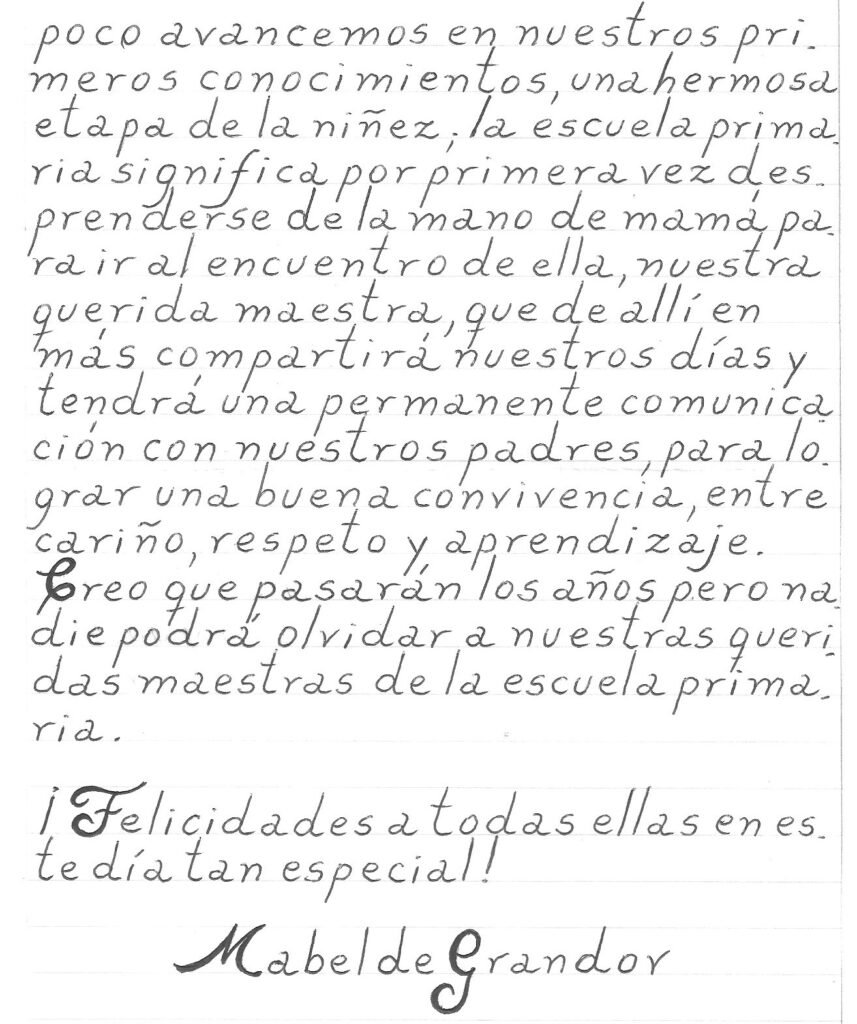 poco avancemos en nuestros pri-
meros conocimientos, una hermosa
etapa de la niñez; la escuela prima-
ria significa por primera vez des-
prenderse de la mano de mamá pa-
ra ir al encuentro de ella, nuestra
querida maestra, que de allí en
más compartirá nuestros días y
tendrá una permanente comunica
ción con nuestros padres, para lo-
grar una buena convivencia, entre
cariño, respeto y aprendizaje.
Creo que pasarán los años pero na-
die podrá olvidar a nuestras queri-
das maestras de la escuela prima-
ria.
¡Felicidades a todas ellas en es-
te día tan especial!
Mabel de Grandor